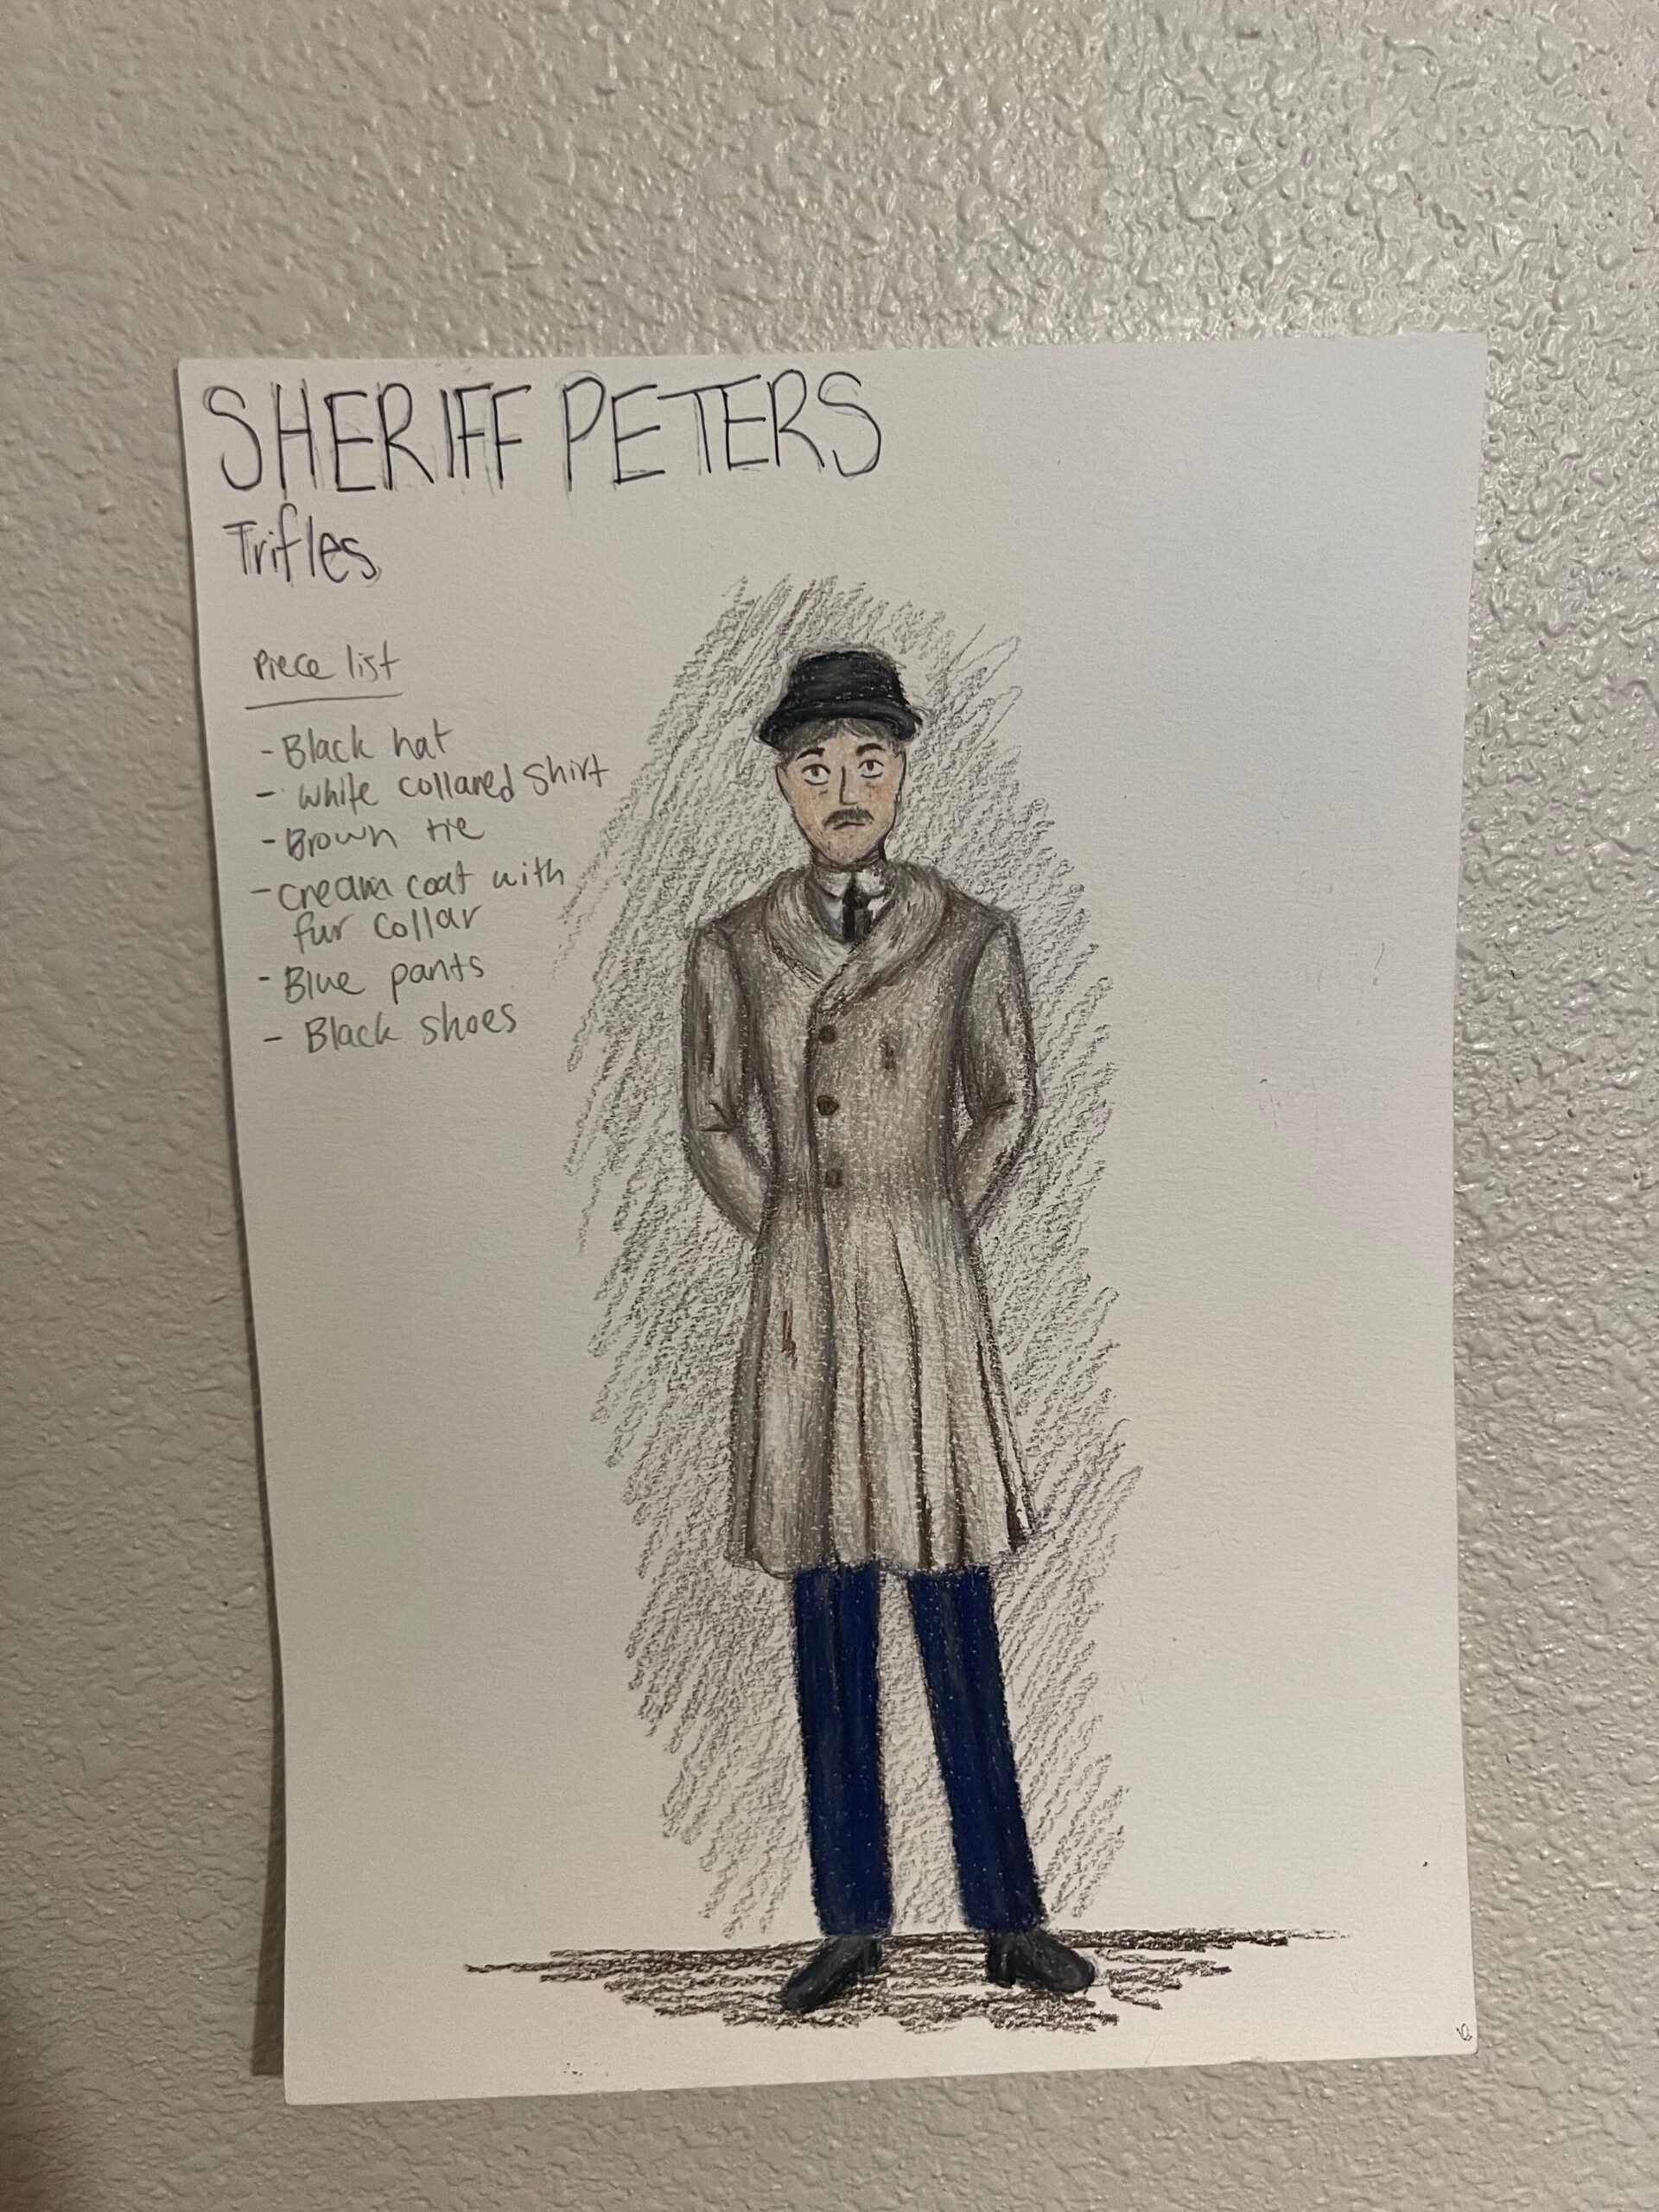 SHERIFF PETERS
Trifles
Piece list
- Black hat
- white collared shirt
- Brown tie
- cream coat with
fur collar
- Blue pants
- Black shoes